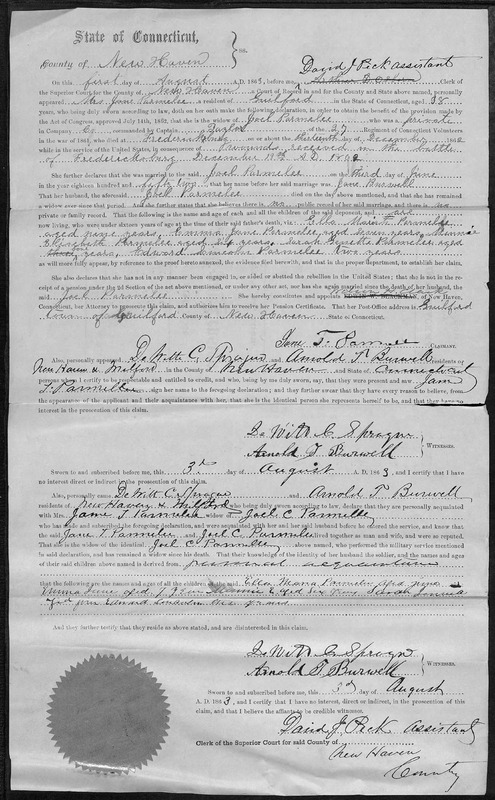 State of Connecticut,
County of New Haven } ss.
David J Peck assistant
On this first day of August A.D. 1863, before me, Clerk of
the Superior Court for the County of New Haven a Court of Record in and for the County and State above named, personally
appeared Mrs Jane Parmelee a resident of Guilford in the State of Connecticut, aged 38
years, who being duly sworn according to law, doth on her oath make the following declaration, in order to obtain the benefit of the provision made by
the Act of Congress, approved July 14th, 1862, that she is the widow of Joel Parmelee who was a private
in Company commanded by Captain Taylor of the 27 Regiment of Connecticut Volunteers
in the War of 1861, who died at Fredericksburg on or about the thirteenth day of December 1862
while in the service of the United States, in consequence of wounds received in the battle
of Fredericksburg December 13th A.D. 1862
She further declares that she was married to the said Joel Parmelee on the third day of June
in the year eighteen hundred and that her name before her said marriage was Jane Russell
That her husband, the aforesaid Joel Parmelee died on the day above mentioned, and that she has remained
a widow ever since that period. And she further states that she believes there is no public record of her said marriage, and there is no
private or family record. That the following is the name and age of each and all the children of the said deponent, and said
now living, who were under sixteen years of age at the time of their said father's death, viz: Ella Maria Parmelee
aged years, Emma Jane Parmelee, aged seven years, Minnie
Elizabeth Parmelee aged six years, Sarah Parmelee, aged
years, Edward Parmelee two years
as will more fully appear, by reference to the proof hereto annexed, the evidence herewith, and that in the proper department, to establish her claim.
She also declares that she has not in any manner been engaged in, or aided or abetted the rebellion in the United States; that she is not in the re-
ceipt of a pension under the 2d Section of the act above mentioned, or under any other act, nor has she again married since the death of her husband, the
said Joel Parmelee She hereby constitutes and appoints of New Haven,
Connecticut, her Attorney to prosecute this claim, and authorizes him to receive her Pension Certificate. That her Post-office address is Guilford
Town of Guilford County of New Haven State of Connecticut.
Jane T. Parmelee CLAIMANT.
Also, personally appeared De Witt C. Sprague and Arnold T. Burwell residents of
New Haven & Milford in the County of New Haven and State of Connecticut
persons whom I certify to be reputable and entitled to credit, and who, being by me duly sworn, say, that they were present and saw Jane
T. Parmelee sign her name to the foregoing declaration; and they further swear that they have every reason to believe, from
the appearance of the applicant and their acquaintance with her, that she is the identical person she represents herself to be, and that they have no
interest in the prosecution of this claim.
De Witt C. Sprague
Arnold T. Burwell } WITNESSES.
Sworn to and subscribed before me, this 3d day of August A. D. 1863, and I certify that I have no
interest direct or indirect in the prosecution of this claim.
Also, personally came De Witt C. Sprague and Arnold T Burwell
residents of New Haven & Milford who being duly sworn according to law, say that they are personally acquainted
with Mrs. Jane T Parmelee widow of Joel C. Parmelee
who has made and submitted the foregoing declaration, and were acquainted with her and her said husband before he entered the service, and know that
the said Jane T. Parmelee and Joel C Parmelee lived together as man and wife, and were so reputed.
That she is the widow of the identical Joel C. Parmelee above named, who performed the military service mentioned
in said declaration, and has remained a widow since his death. That their knowledge of the identity of her husband the soldier, and the names and ages
of their said children above named is derived from personal acquaintance
that the following are the names and ages of all the children of the said Ella Maria Parmelee aged
Emma Jane aged 7 Minnie E. aged six Sarah
Edward
And they further testify that they reside as above stated, and are disinterested in this claim.
De Witt C. Sprague
Arnold T. Burwell } WITNESSES.
Sworn to and subscribed before me, this 3d day of August
A. D. 1863, and I certify that I have no interest, direct or indirect, in the prosecution of this
claim, and that I believe the affiants to be credible witnesses.
David J. Peck Assistant
Clerk of the Superior Court for said County of
New Haven
County